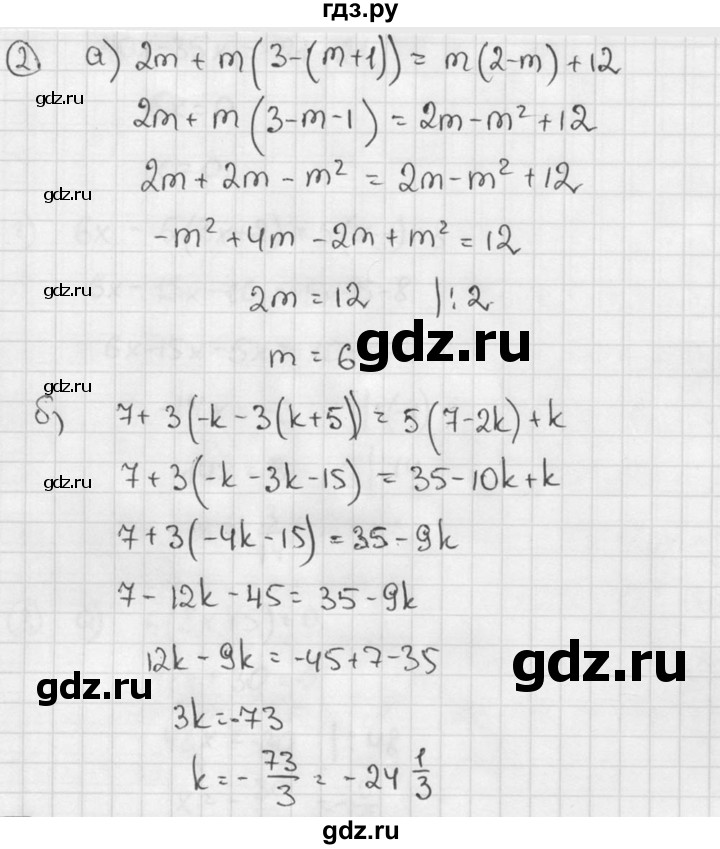 гдз.ру
② а) 2m + m(3-(m+1)) = m(2-m)+12
gdz.ru
2m + m (3-m-1) = 2m-m²+12
2m + 2m - m² = 2m-m²+12
gdz.ru
-m²+4m-2m+m²=12
gdz.ru
2m = 12 |:2
gdz.ru
m = 6
б) 7+ 3(-k-3(k+5)) = 5(7-2k)+k
7+3(-k-3k-15) = 35-10k+k
gdz.ru
7+3(-4k-15) = 35-9k
7- 12k-45= 35-9k
gdz.ru
12k-9k = -45+7-35
gdz.ru
gdz.ru
3k=-73
k=- 73/3 = -24 1/3
gdz.ru